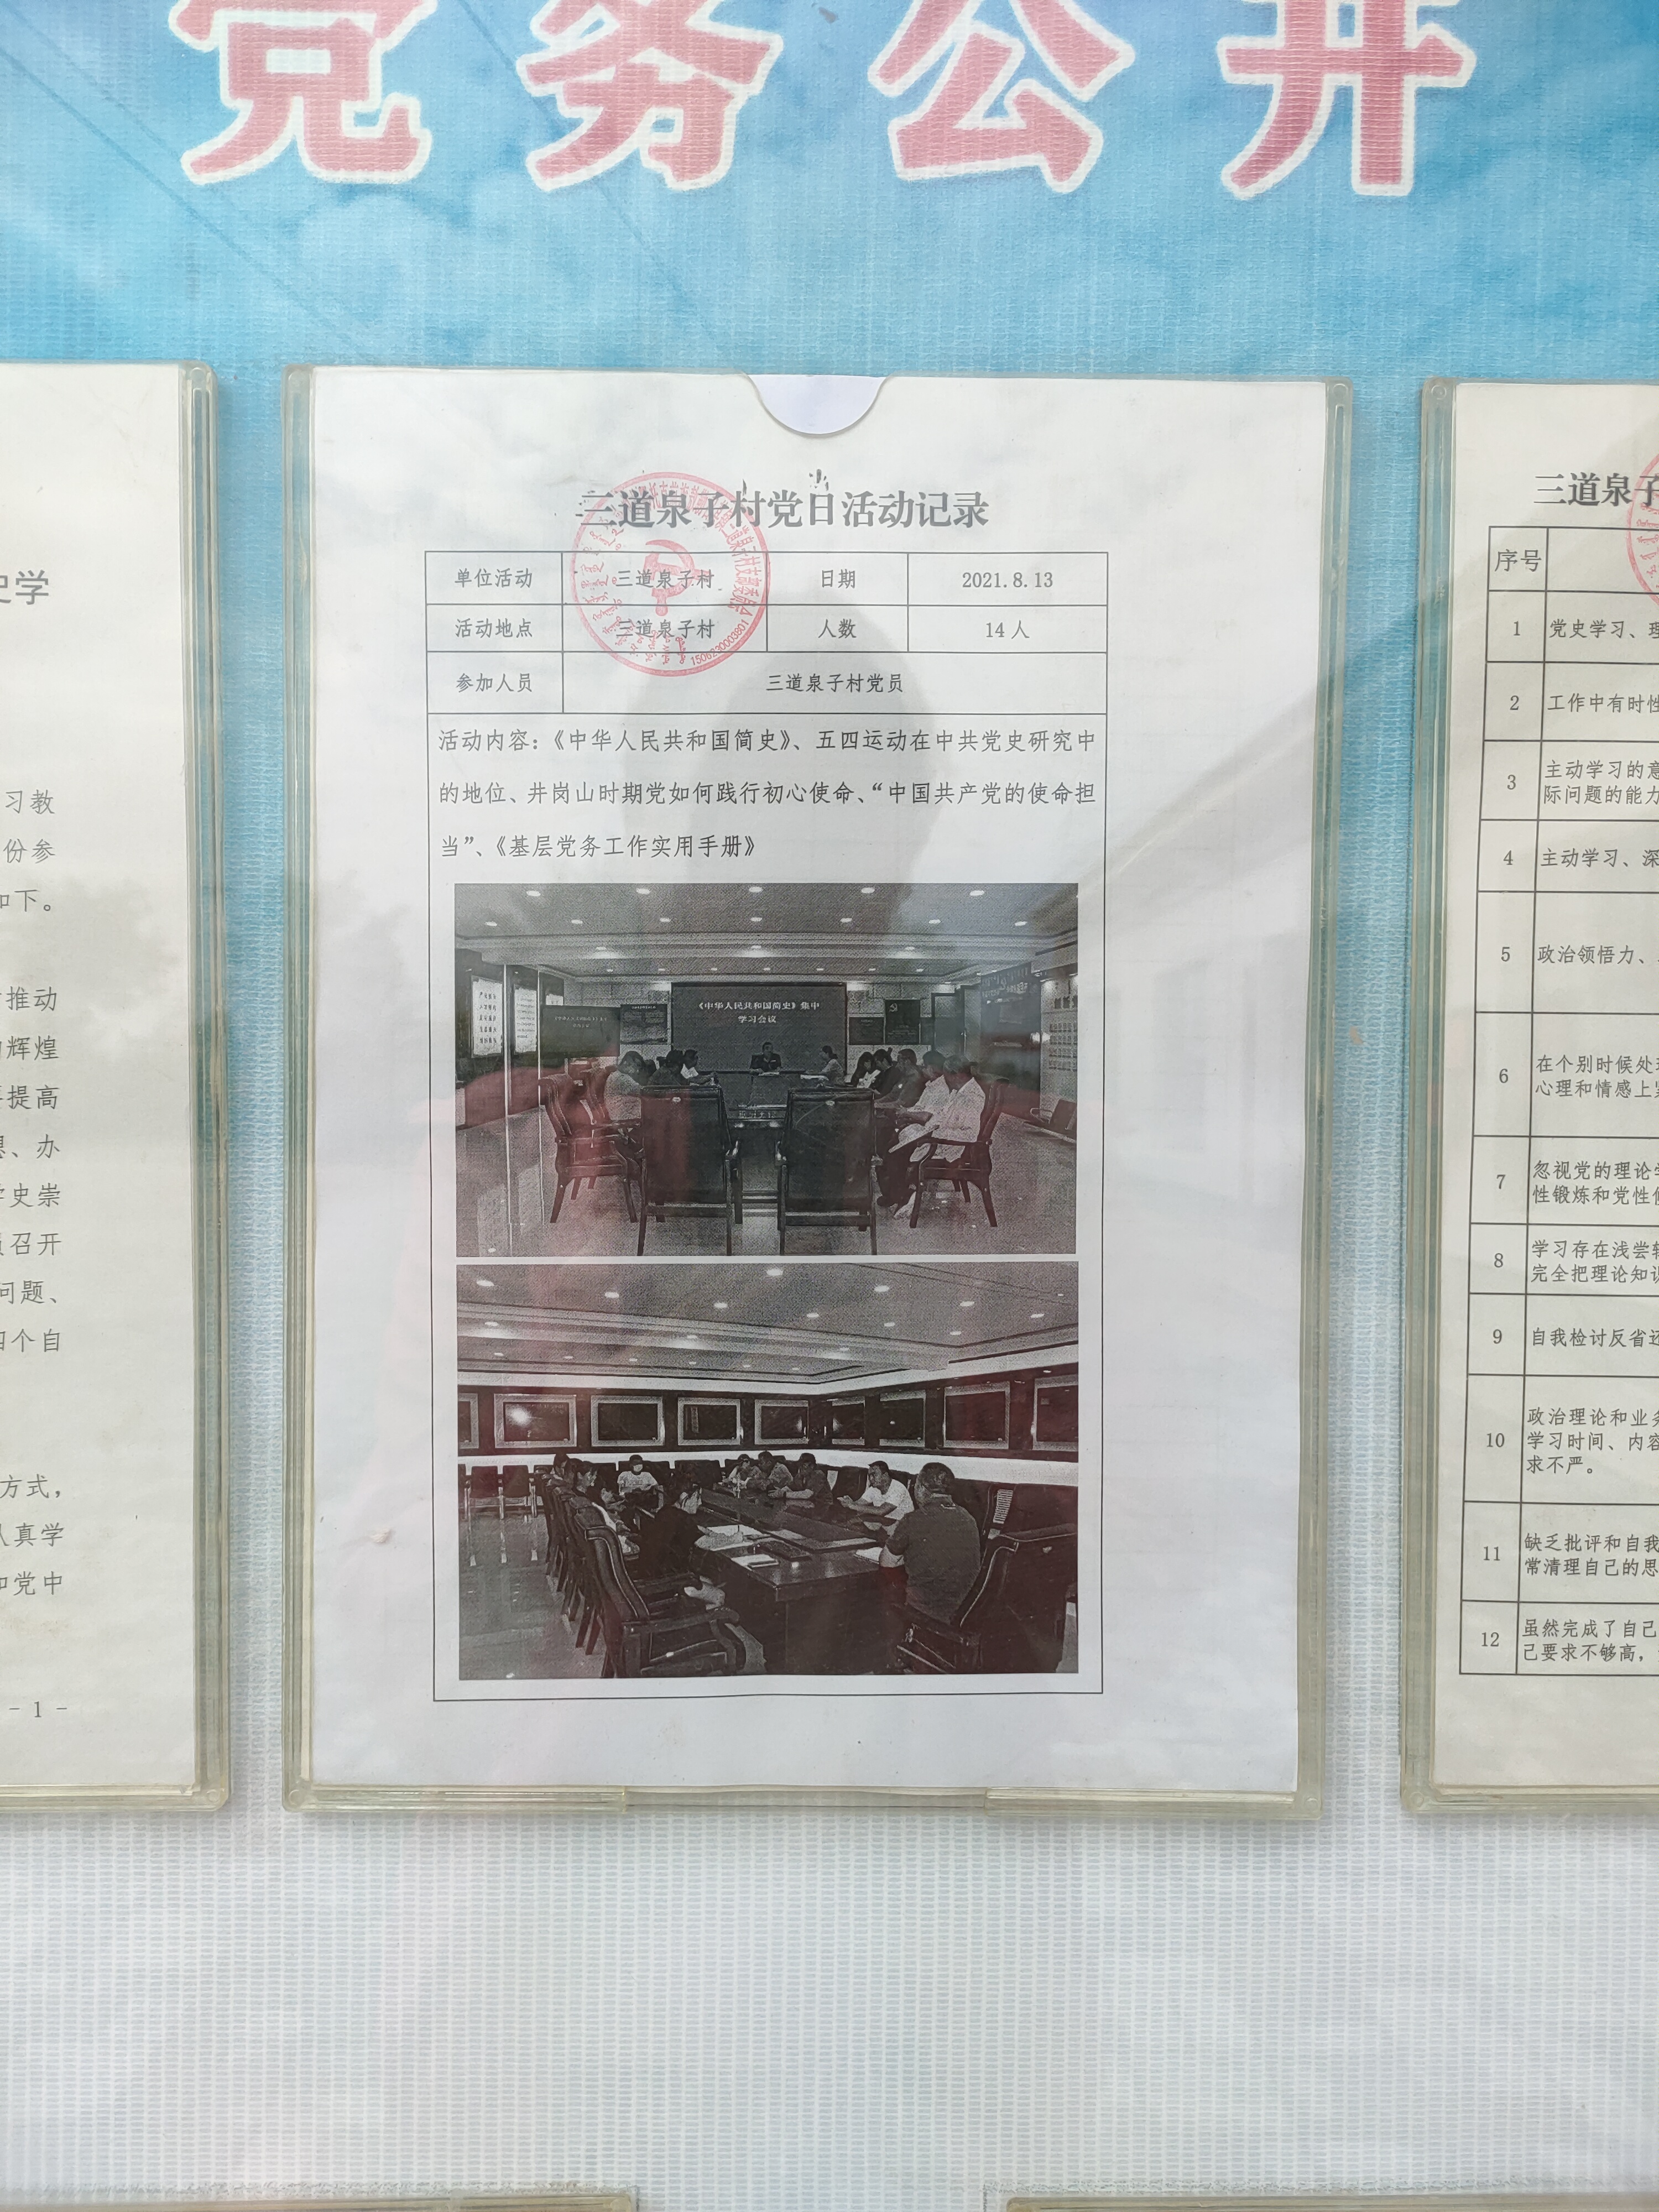 党务公开
史学
习教
份参
如下。
推动
辉煌
提高
、办
史崇
召开
问题、
四个自
方式，
认真学
和党中
- 1 -
三道泉子村党日活动记录
单位活动 三道泉子村 日期 2021.8.13
活动地点 三道泉子村 人数 14 人
参加人员 三道泉子村党员
活动内容：《中华人民共和国简史》、五四运动在中共党史研究中
的地位、井岗山时期党如何践行初心使命、“中国共产党的使命担
当”、《基层党务工作实用手册》
《中华人民共和国简史》集中
学习会议
1506230003801
三道泉子
序号
1 党史学习、理
2 工作中有时性
3 主动学习的意
际问题的能力
4 主动学习、深
5 政治领悟力、
6 在个别时候处理
心理和情感上
7 忽视党的理论学
性锻炼和党性修
8 学习存在浅尝辄
完全把理论知识
9 自我检讨反省还
10 政治理论和业务
学习时间、内容
求不严。
11 缺乏批评和自我
常清理自己的思
12 虽然完成了自己
己要求不够高，